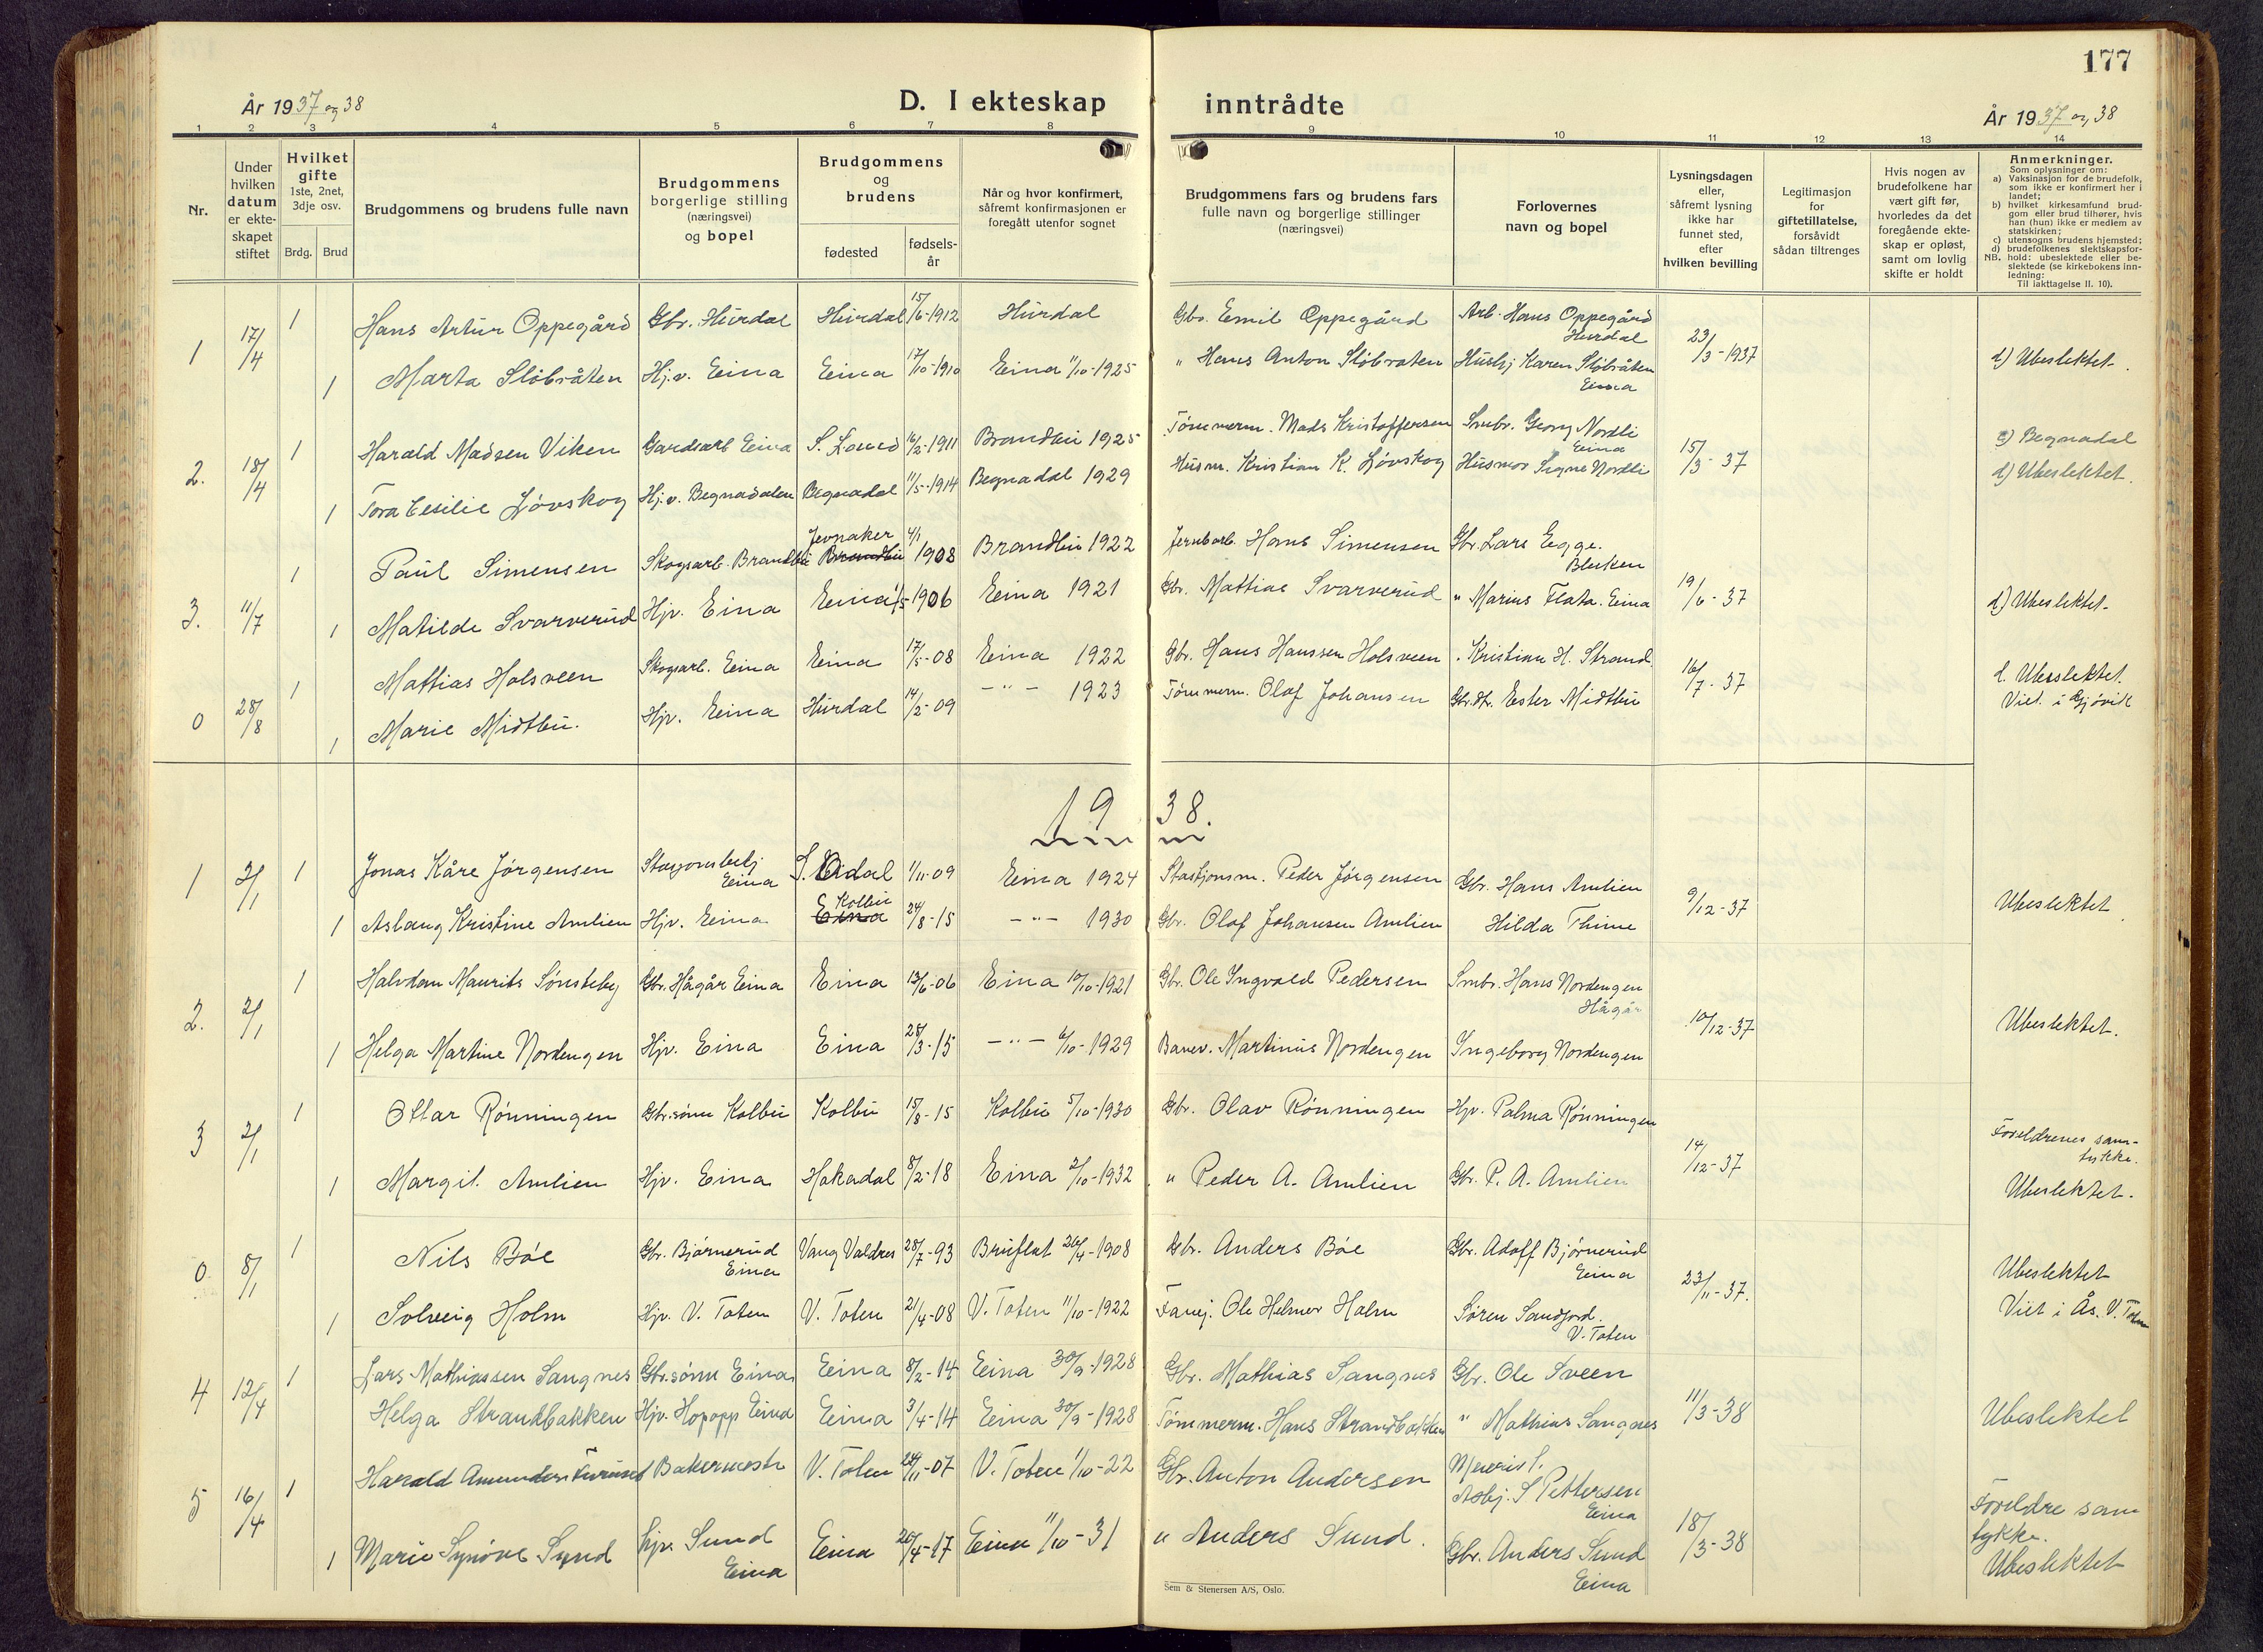 177
År 1937 og 38
D. I ekteskap inntrådte
År 1937 og 38
1 2 3 4 5 6 7 8 9 10 11 12 13 14
Nr.
Under hvilken datum er ekteskapet stiftet
Hvilket gifte 1ste, 2net, 3dje osv.
Brdg. Brud
Brudgommens og brudens fulle navn
Brudgommens borgerlige stilling (næringsvei) og bopel
Brudgommens og brudens
fødested
fødselsår
Når og hvor konfirmert, såfremt konfirmasjonen er foregått utenfor sognet
Brudgommens fars og brudens fars fulle navn og borgerlige stillinger (næringsvei)
Forlovernes navn og bopel
Lysningsdagen eller, såfremt lysning ikke har funnet sted, efter hvilken bevilling
Legitimasjon for giftetillatelse, forsåvidt sådan tiltrenges
Hvis nogen av brudefolkene har vært gift før, hvorledes da det foregående ekteskap er opløst, samt om lovlig skifte er holdt
Anmerkninger.
Som oplysninger om:
a) Vaksinasjon for de brudefolk, som ikke er konfirmert her i landet;
b) hvilket kirkesamfund brudgom eller brud tilhører, hvis han (hun) ikke er medlem av statskirken;
c) utensogns brudens hjemsted;
d) brudefolkenes slektskapsforhold: ubeslektede eller beslektede (se kirkebokens innledning:
NB.
Til iakttagelse II. 10).
1 17/4 1 Hans Artur Oppegård Gbr. Hurdal Hurdal 15/6-1912 Hurdal Gbr. Emil Oppegård Arb. Hans Oppegård Hurdal 23/3-1937 d) Ubeslektet.
1 Marta Slöbråten Hj.v. Eina Eina 17/10-1910 Eina 11/10-1925 " Hans Anton Slöbraten Husbj Karen Slöbråten Eina
2. 18/4 1 Harald Madsen Viken Gardsarb Eina S. Land 16/2-1911 Brandbu 1925 Tømmerm. Mads Kristoffersen Smbr. Georg Nordli Eina 15/3-37 c) Begnadal
1 Tora Cesilie Løvskog Hj.v. Begnadalen Begnadal 11/5-1914 Begnadal 1929 Husm. Kristian K. Løvskog Husmor Signe Nordli d) Ubeslektet.
3. 11/7 1 Paul Simensen Skogsarb. Brandbu Brandbu Jevnaker 4/1 1908 Brandbu 1922 Jernbarb. Hans Simensen Gbr. Lars Egge. Bleiken 19/6-37 d) Ubeslektet.
1 Matilde Svarverud Hjv. Eina Eina 1/5 1906 Eina 1921 Gbr. Mattias Svarverud " Marius Flata. Eina
0 28/8 1 Mattias Holsveen Skogsarb. Eina Eina 17/5-08 Eina 1922 Gbr. Hans Hanssen Holsveen " Kristian H. Strand. 16/7-37 d. Ubeslektet.
1 Marie Midtbu. Hjv. Eina Hurdal 14/2-09 -"- 1923 Tømmerm. Olaf Johansen Gbr.dt. Ester Midtbu Viet. i Gjøvik
1938.
1 2/1 1 Jonas Kåre Jørgensen Stasjonsbetj. Eina S. Odal 1/11-09 Eina 1924 Stasjonsm. Peder Jørgensen Gbr. Hans Amlien 9/12-37 Ubeslektet
1 Aslaug Kristine Amlien Hjv. Eina Eina Kolbu 24/8-15 -"- 1930 Gbr. Olaf Johansen Amlien Hilda Thime
2. 2/1 1 Halvdan Maurits Sønsteby Gbr. Hågår Eina Eina 13/6-06 Eina 10/10-1921 Gbr. Ole Ingvald Pedersen Smbr. Hans Nordengen Hågår 10/12-37 Ubeslektet.
1 Helga Martine Nordengen Hjv. Eina Eina 28/3-15 -"- 6/10-1929 Banev. Martinius Nordengen Ingeborg Nordengen
3 2/1 1 Ottar Rønningen Gbr.sønn Kolbu Kolbu 15/8-15 Kolbu 5/10-1930 Gbr. Olav Rønningen Hjv. Palma Rønningen 14/12-37 Foreldrenes samtykke.
1 Margit Amlien Hjv. Eina Hakadal 8/2-18 Eina 2/10-1932 " Peder A. Amlien Gbr. P. A. Amlien Ubeslektet.
0 8/1 1 Nils Bøe Gbr. Bjørnerud Eina Vang Valdres 28/7-93 Bruflat 26/4-1908 Gbr. Anders Bøe Gbr. Adolf Bjørnerud Eina 23/11-37. Ubeslektet
1 Solveig Holm Hjv. V. Toten V. Toten 21/4-08 V. Toten 11/10-1922 Fanej. Ole Helmer Holm Søren Sandjord. V. Toten Viet i Ås. V. Toten
4 12/4 1 Lars Mathiassen Sangnes Gbr.sønn Eina Eina 8/2-14 Eina 30/9-1928 Gbr. Mathias Sangnes Gbr. Ole Sveen 11/3-38 Ubeslektet
Helga Strandbakken Hjv. Hopopp Eina Eina 3/4-14 Eina 30/9-1928 Tömmerm. Hans Strandbakken " Mathias Sangnes
5 16/4 1 Harald Amundsen Furuset Bakermestr V. Toten 24/11-07 V. Toten 1/10-22 Gbr. Anton Andersen Meierist. Asbj. S Pettersen Eina 18/3-38 Foreldre samtykke.
1 Marie Synøve Synd Hjv. Sund Eina Eina 26/4-17 Eina 11/10-31 " Anders Sund. Gbr. Anders Sund Eina Ubeslektet
Sem & Stenersen A/S, Oslo.